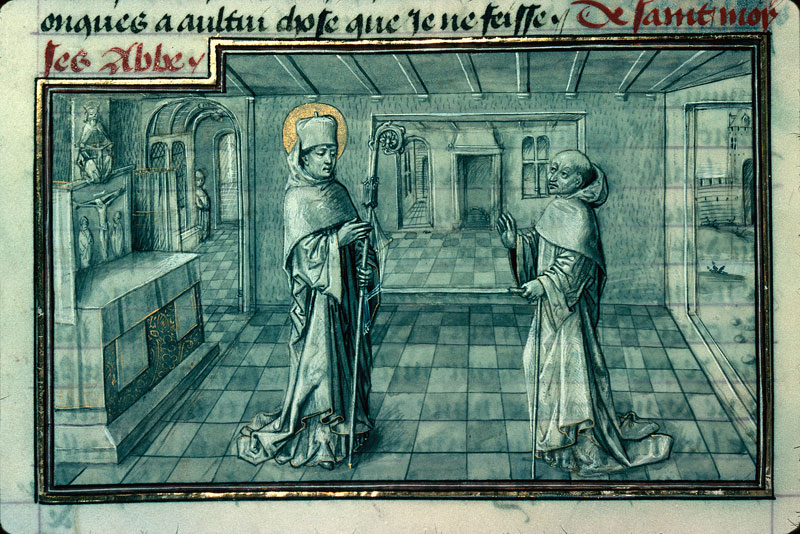 onques a aultrui chose que Je ne feisse De saint moy
ses Abbe